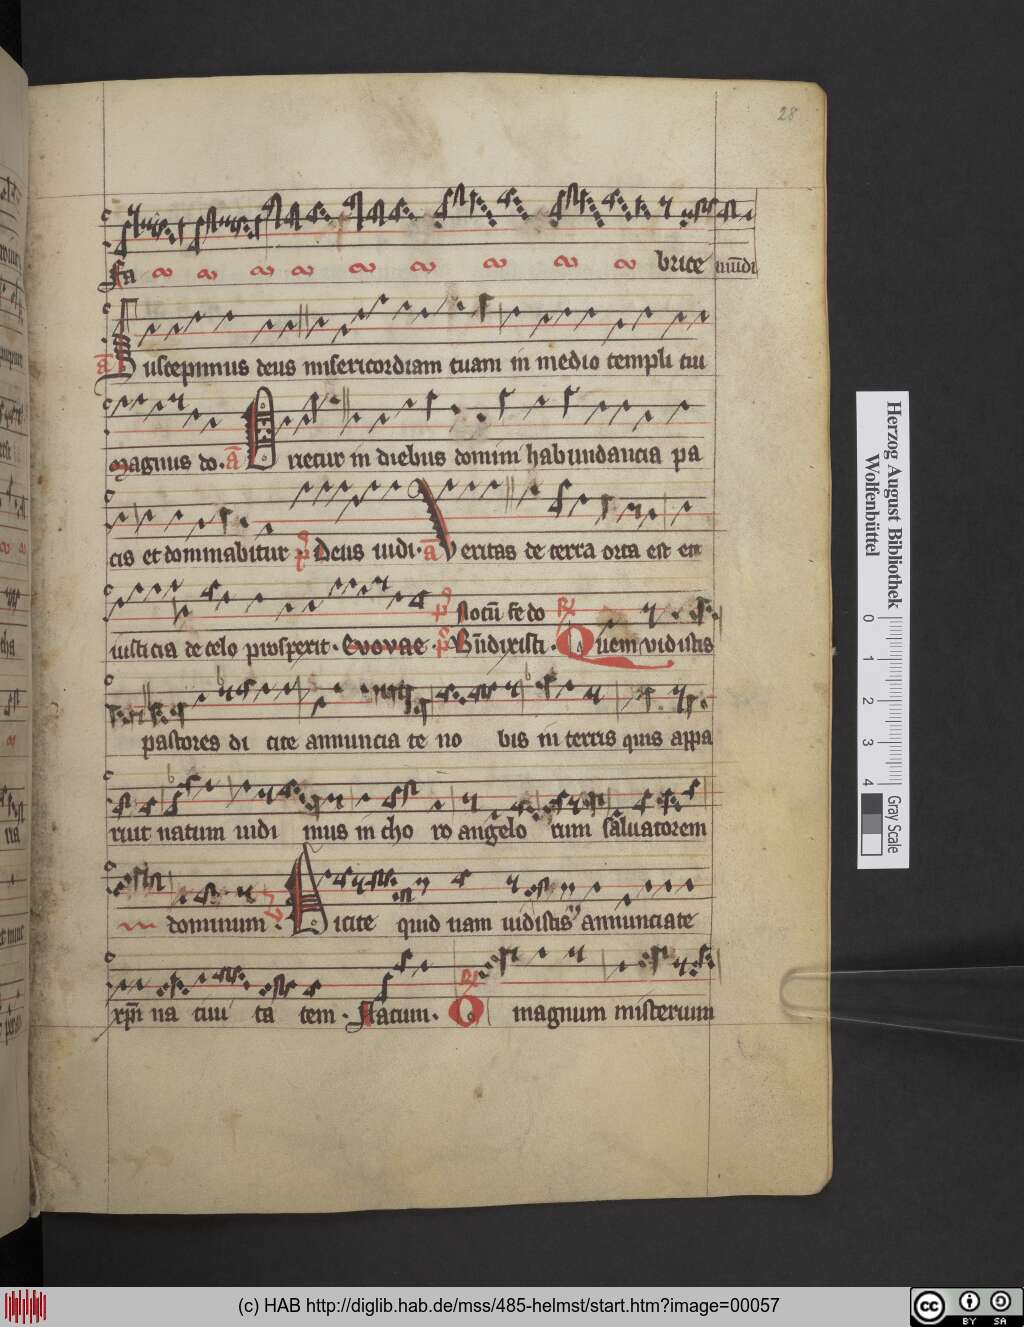 28
fa brice mūdi
a Suscepimus deus misericordiam tuam in medio templi tui
magnus do. a Orietur in diebus domini habundancia pa
cis et dominabitur p Deus iudi. a Veritas de terra orta est et
p Notū fe do R
iusticia de celo prosperit. Evovae. p Bn̄dixisti. Quem vidistis
pastores di cite annuncia te no bis in terris quis appa
ruit natum uidi mus in cho ro angelo rum saluatorem
dominum. Dicite quid nam uidistis annunciate
xp̄i na tiui ta tem. Natum. R O magnum misterium
Herzog August Bibliothek
Wolfenbüttel
0 1 2 3 4 Gray Scale
(c) HAB http://diglib.hab.de/mss/485-helmst/start.htm?image=00057
cc BY SA